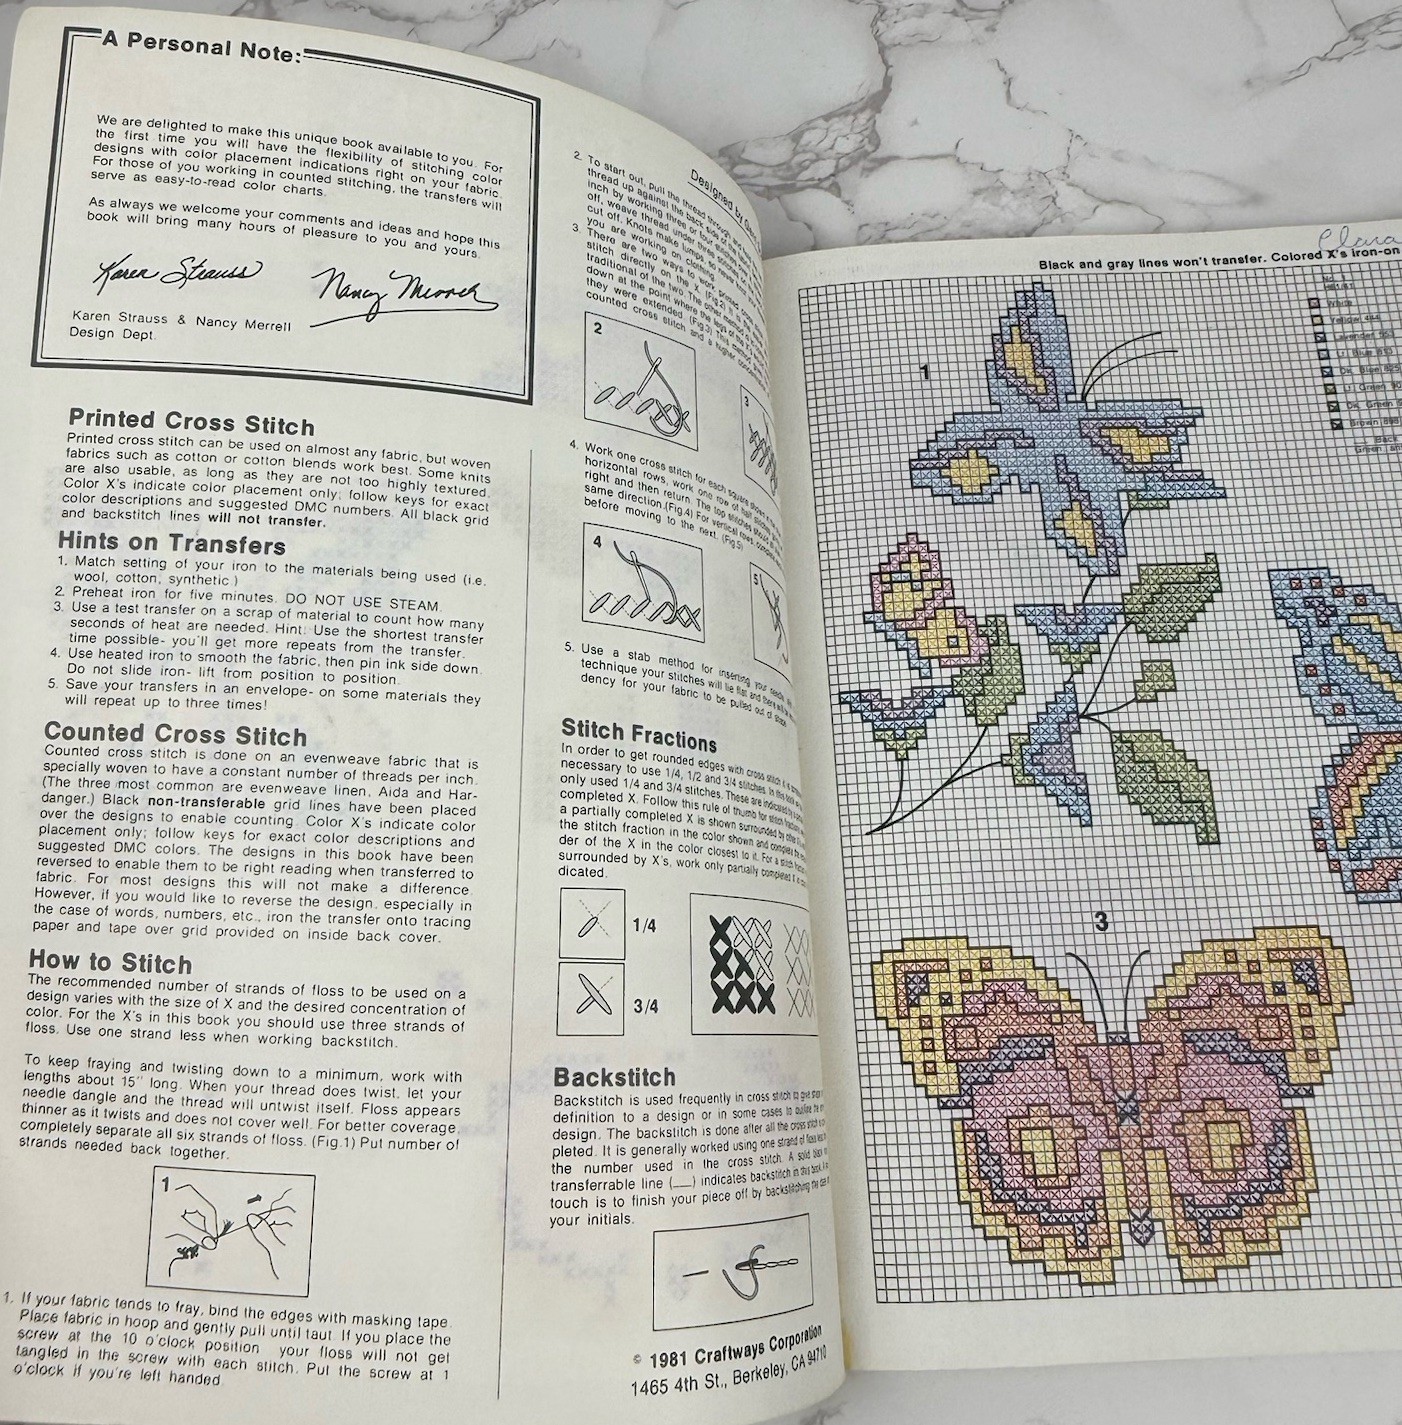 A Personal Note:
We are delighted to make this unique book available to you. For
the first time you will have the flexibility of stitching color
designs with color placement indications right on your fabric.
For those of you working in counted stitching, the transfers will
serve as easy-to-read color charts.
As always we welcome your comments and ideas and hope this
book will bring many hours of pleasure to you and yours.
Karen Strauss Nancy Merrell
Karen Strauss & Nancy Merrell
Design Dept.
Printed Cross Stitch
Printed cross stitch can be used on almost any fabric, but woven
fabrics such as cotton or cotton blends work best. Some knits
are also usable, as long as they are not too highly textured.
Color X's indicate color placement only; follow keys for exact
color descriptions and suggested DMC numbers. All black grid
and backstitch lines will not transfer.
Hints on Transfers
1. Match setting of your iron to the materials being used (i.e.
wool, cotton, synthetic.)
2. Preheat iron for five minutes. DO NOT USE STEAM.
3. Use a test transfer on a scrap of material to count how many
seconds of heat are needed. Hint: Use the shortest transfer
time possible- you'll get more repeats from the transfer.
4. Use heated iron to smooth the fabric, then pin ink side down.
Do not slide iron- lift from position to position.
5. Save your transfers in an envelope- on some materials they
will repeat up to three times!
Counted Cross Stitch
Counted cross stitch is done on an evenweave fabric that is
specially woven to have a constant number of threads per inch.
(The three most common are evenweave linen, Aida and Har-
danger.) Black non-transferable grid lines have been placed
over the designs to enable counting. Color X's indicate color
placement only; follow keys for exact color descriptions and
suggested DMC colors. The designs in this book have been
reversed to enable them to be right reading when transferred to
fabric. For most designs this will not make a difference.
However, if you would like to reverse the design, especially in
the case of words, numbers, etc., iron the transfer onto tracing
paper and tape over grid provided on inside back cover.
How to Stitch
The recommended number of strands of floss to be used on a
design varies with the size of X and the desired concentration of
color. For the X's in this book you should use three strands of
floss. Use one strand less when working backstitch.
To keep fraying and twisting down to a minimum, work with
lengths about 15" long. When your thread does twist, let your
needle dangle and the thread will untwist itself. Floss appears
thinner as it twists and does not cover well. For better coverage,
completely separate all six strands of floss. (Fig.1) Put number of
strands needed back together.
1
1. If your fabric tends to fray, bind the edges with masking tape.
Place fabric in hoop and gently pull until taut. If you place the
screw at the 10 o'clock position your floss will not get
tangled in the screw with each stitch. Put the screw at 1
o'clock if you're left handed.
Designed by
2. To start out, pull the thread through
thread up against the back side of
inch by working three or four stitches
off, weave thread under three stitches
cut off. Knots make lumps
you are working on clothing
3. There are two ways to work printed
stitch directly on the X. (Fig.2)
traditional of the two. The other method
down at the point where the legs of the
they were extended. (Fig.3) This
counted cross stitch and a higher
2
3
4. Work one cross stitch for each square shown
horizontal rows, work one row of half stitches
right and then return. The top stitches should all
same direction.(Fig.4) For vertical rows, complete
before moving to the next. (Fig.5)
4
5
5. Use a stab method for inserting your needle.
technique your stitches will lie flat and there will be
dency for your fabric to be pulled out of shape.
Stitch Fractions
In order to get rounded edges with cross stitch it is
necessary to use 1/4, 1/2 and 3/4 stitches. In this book
only used 1/4 and 3/4 stitches. These are indicated by
completed X. Follow this rule of thumb for stitch fractions
a partially completed X is shown surrounded by
the stitch fraction in the color shown and complete the
der of the X in the color closest to it. For a stitch
surrounded by X's, work only partially completed X
dicated.
1/4
3/4
Backstitch
Backstitch is used frequently in cross stitch to give
definition to a design or in some cases to outline the
design. The backstitch is done after all the cross stitch
pleted. It is generally worked using one strand of floss less
the number used in the cross stitch. A solid black
transferrable line (__) indicates backstitch in this book.
touch is to finish your piece off by backstitching the
your initials.
© 1981 Craftways Corporation
1465 4th St., Berkeley, CA 94710
Clara
Black and gray lines won't transfer. Colored X's iron-on
White
Yellow 444
Lavender 553
Lt. Blue 813
Dk. Blue 825
Lt. Green
Dk. Green
Brown 898
Back
Green
1
3